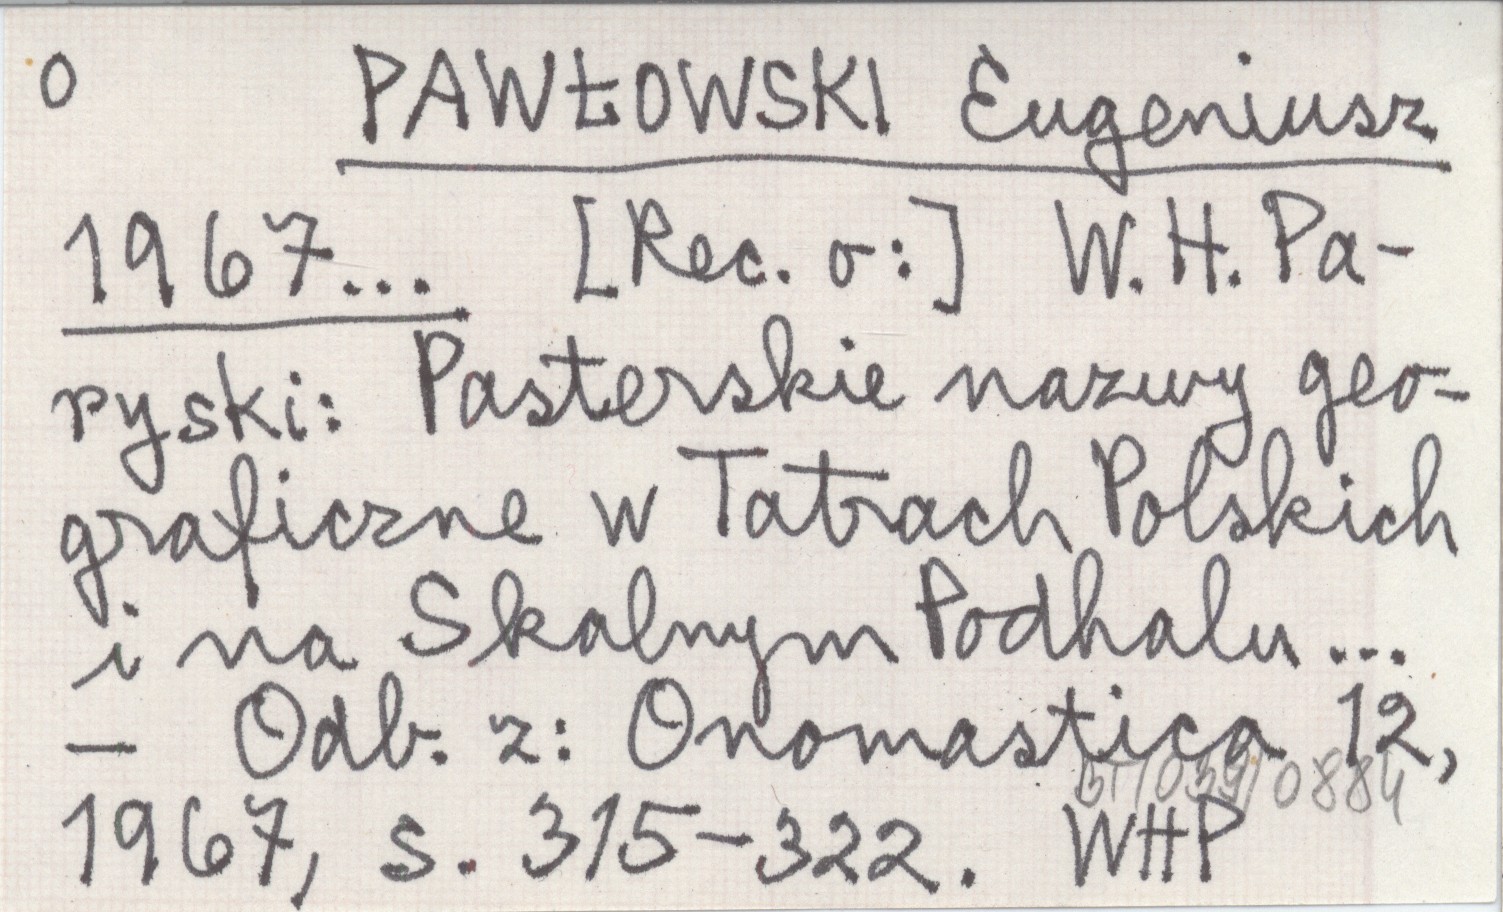 O PAWŁOWSKI Eugeniusz
1967... [Rec. o:] W.H. Pa-
ryski: Pasterskie nazwy geo-
graficzne w Tatrach Polskich
i na Skalnym Podhalu...
— Odb. z: Onomastica 12,
1967, s. 315-322. WHP